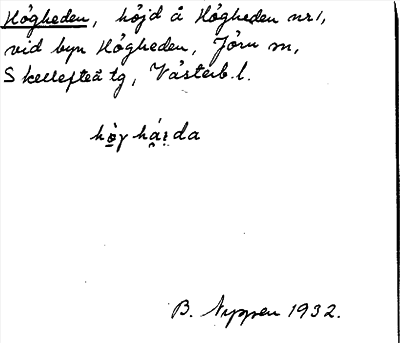 Högheden, höjd å Högheden nr 1,
vid byn Högheden, Jörn sn,
Skellefteå tg, Västerb. l.
B. Nyppen 1932.